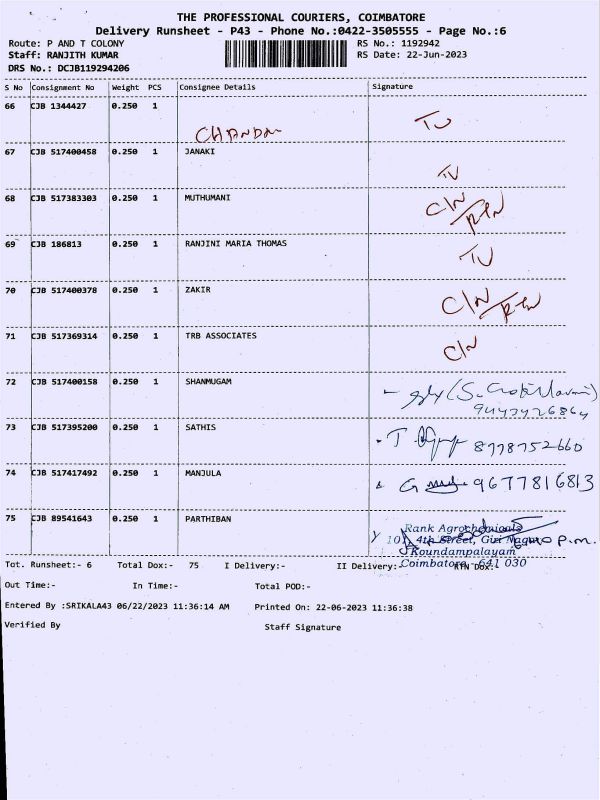 THE PROFESSIONAL COURIERS, COIMBATORE
Delivery Runsheet - P43 - Phone No.:0422-3505555 - Page No.:6
Route: P AND T COLONY RS No.: 1192942
Staff: RANJITH KUMAR RS Date: 22-Jun-2023
DRS No.: DCJB119294206
S No Consignment No Weight PCS Consignee Details Signature
66 CJB 1344427 0.250 1 TV
CHANDAN
67 CJB 517400458 0.250 1 JANAKI
TV
68 CJB 517383303 0.250 1 MUTHUMANI C/N
69 CJB 186813 0.250 1 RANJINI MARIA THOMAS
TV
70 CJB 517400378 0.250 1 ZAKIR C/N
71 CJB 517369314 0.250 1 TRB ASSOCIATES
C/N
72 CJB 517400158 0.250 1 SHANMUGAM
73 CJB 517395200 0.250 1 SATHIS
8778752660
74 CJB 517417492 0.250 1 MANJULA
9677816813
75 CJB 89541643 0.250 1 PARTHIBAN
Rank Agrochemicals
4th Street, Giri Nagar P.m.
Koundampalayam
Coimbatore 641 030
Tot. Runsheet:- 6 Total Dox:- 75 I Delivery:- II Delivery:- RTN Dox:-
Out Time:- In Time:- Total POD:-
Entered By :SRIKALA43 06/22/2023 11:36:14 AM Printed On: 22-06-2023 11:36:38
Verified By Staff Signature